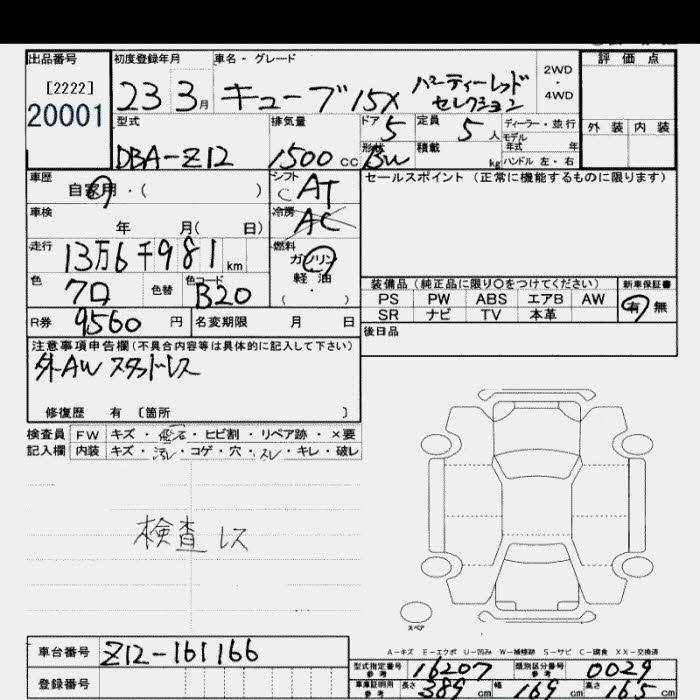 出品番号 初度登録年月 車名・グレード 評価点
[2222] 20001
23 3月 キューブ 15X パーティーレッド セレクション 2WD・4WD
型式 排気量 ドア 定員 ディーラー・並行 外装 内装
DBA-Z12 1500cc 5 5人 モデル年式 年
形状 BW 積載 kg ハンドル 左・右
車歴 自家用・( ) シフト CAT セールスポイント (正常に機能するものに限ります)
車検 年 月( 日) 冷房 AC
走行 13万6千981km 燃料 ガソリン 軽油 ( ・ )
色 クロ 色替 色コード B20
装備品 (純正品に限り○をつけてください) 新車保証書
PS PW ABS エアB AW 有・無
SR ナビ TV 本革
R券 9560円 名変期限 月 日 後日品
注意事項申告欄(不具合内容等は具体的に記入して下さい)
外AW スタッドレス
修復歴 有 〔箇所 〕
検査員 FW キズ・飛石・ヒビ割・リペア跡・×要
記入欄 内装 キズ・汚レ・コゲ・穴・スレ・キレ・破レ
検査レス
スペア
A-キズ E-エクボ U-凹み W-補修跡 S-サビ C-腐食 XX-交換済
車台番号 Z12-161166
型式指定番号 参考 16207 類別区分番号 参考 0029
登録番号
車庫証明用 参考 長さ 389cm 幅 169cm 高さ 165cm